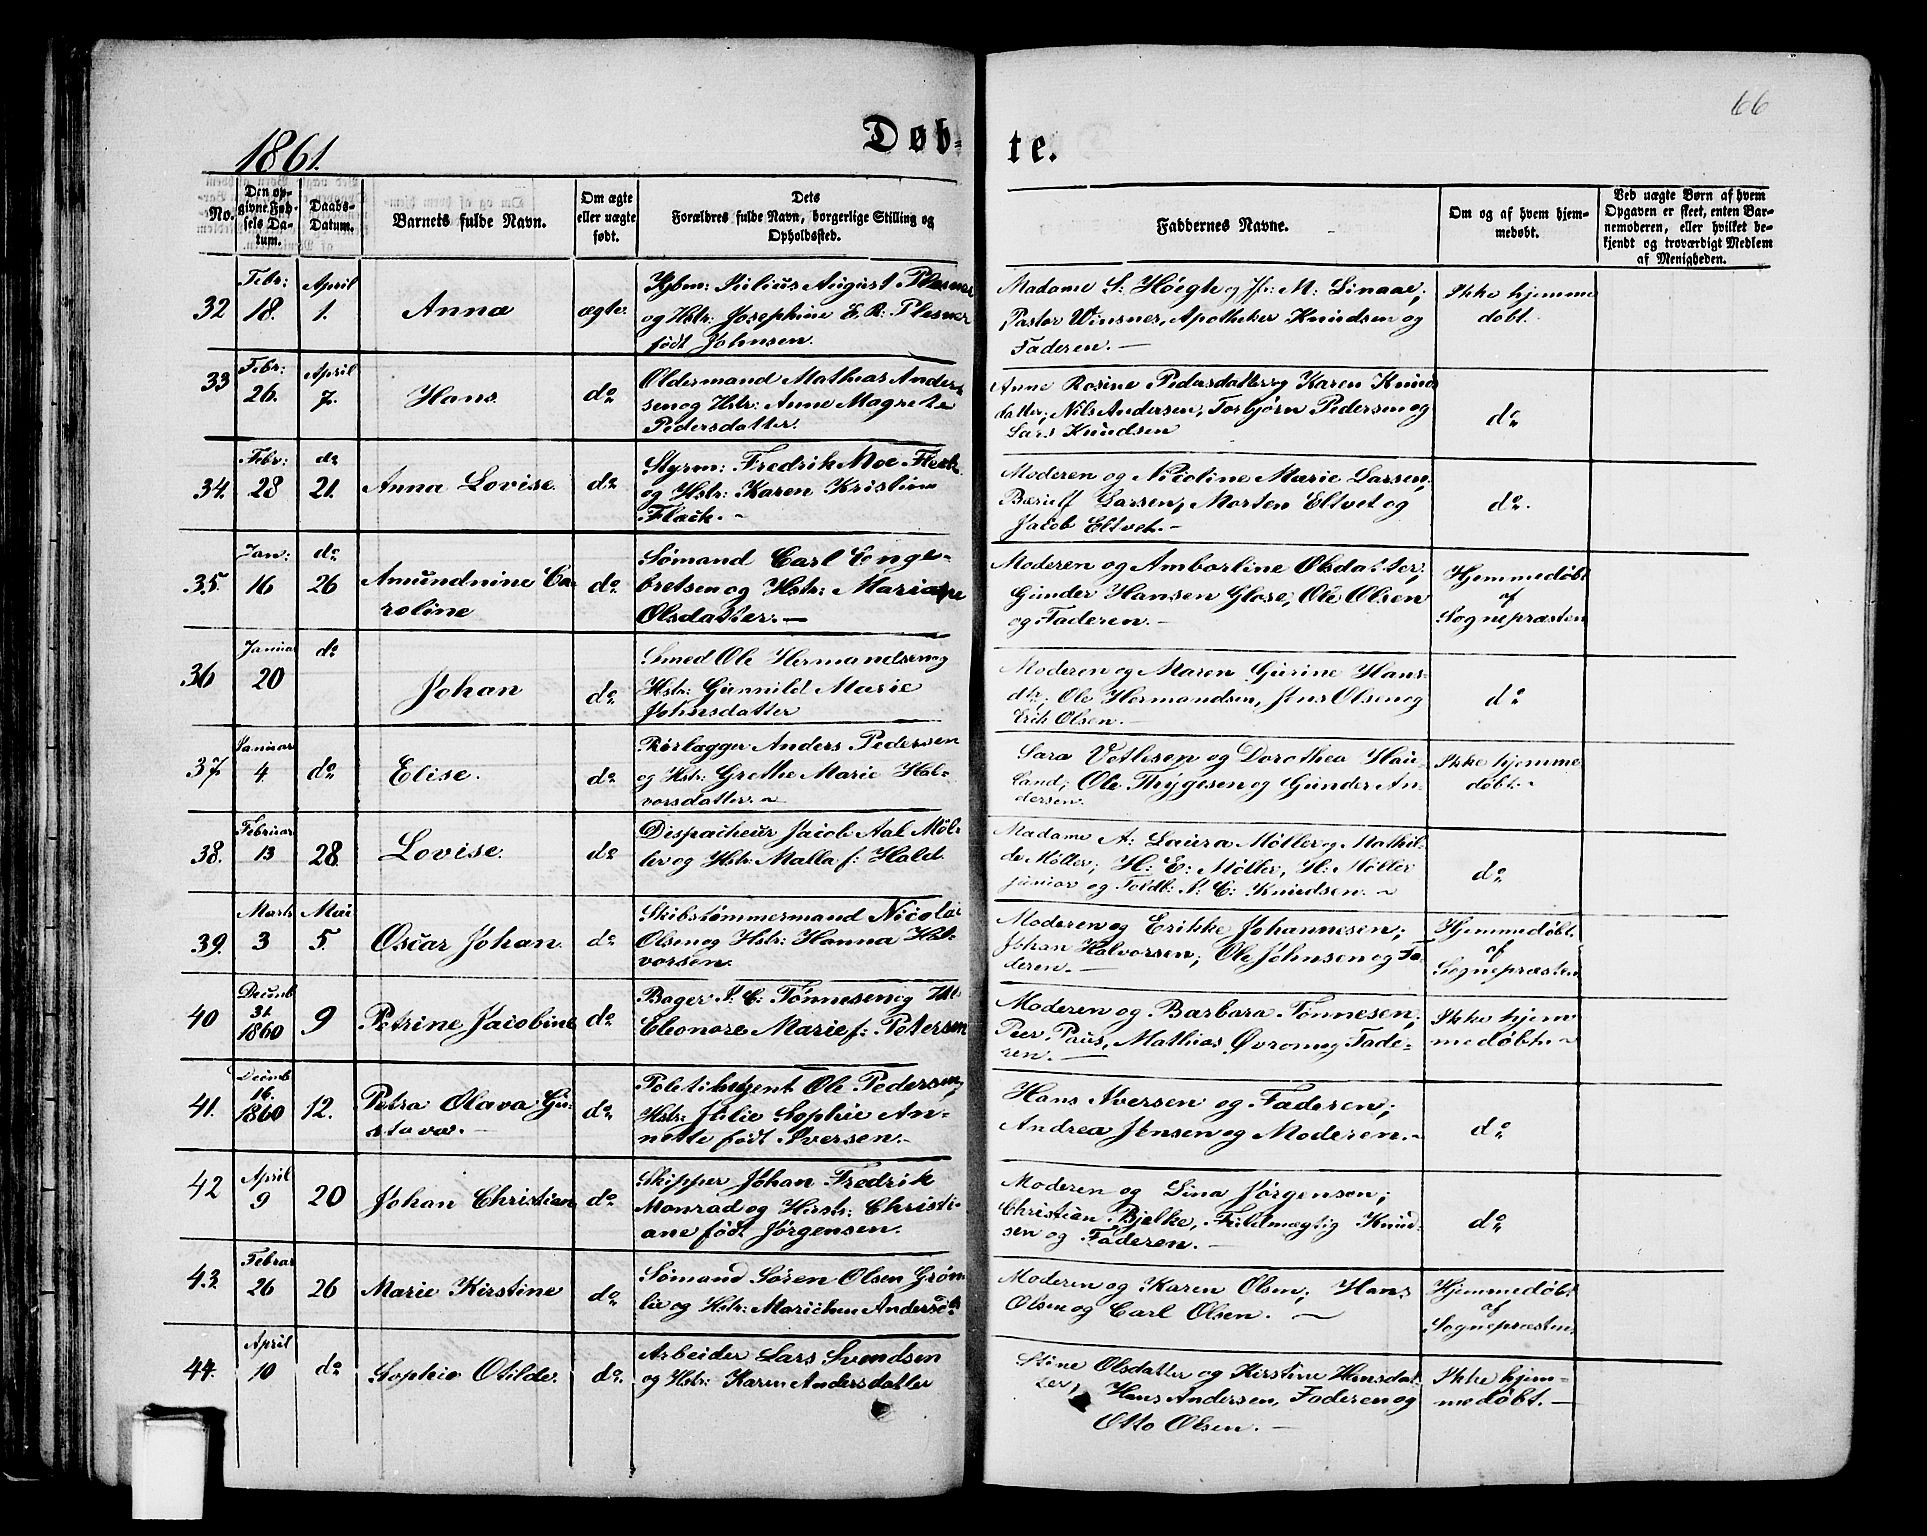 66
1861.
Døb-te.
No.
Den opgivne Fødsels Datum.
Daabs-Datum.
Barnets fulde Navn.
Om ægte eller uægte født.
Dets Forældres fulde Navn, borgerlige Stilling og Opholdssted.
Faddernes Navne.
Om og af hvem hjemmedøbt.
Ved uægte Børn af hvem Opgaven er skeet, enten Barnemoderen, eller hvilket bekjendt og troværdigt Medlem af Menigheden.
32 Febr: 18. April 1. Anna ægte.
Kjbm: Julius August Plesner
og Hstr: Josephine E. R: Plesner
født Johnsen.
Madame S: Höegh og Jfr: M: Linaae;
Pastor Winsner, Apotheker Knudsen og
Faderen. —
Ikke hjemme
døbt.
33 Febr: 26. April 7. Hans do
Oldermand Mathias Ander-
sen og Hstr: Anne Magrete
Pedersdatter.
Anne Rosine Pedersdatter og Karen Knuds
datter; Nils Andersen, Torbjørn Pedersen og
Lars Knudsen
do
34. Febr: 28 do 21. Anna Lovise. do
Styrm: Fredrik Moe Fleck
og Hstr: Karen Kristine
Flack. —
Moderen og Nicoline Marie Larsen;
Larsen, Morten Eltvet og
Jacob Eltvet. —
do.
35. Jan: 16 do 26 Amundnine Ca-
roline do
Sømand Carl Enge-
bretsen og Hstr: Mariane
Olsdatter. —
Moderen og Amborline Olsdatter;
Gunder Hansen Glose, Ole Olsen
og Faderen. —
Hjemmedøbt
af
Sognepræsten
36 Januar 20 do Johan do
Smed Ole Hermandsen og
Hstr: Gunnild Marie
Johnsdatter
Moderen og Maren Gurine Hans-
dtr; Ole Hermandsen, Jens Olsen og
Erik Olsen. —
do
37. Januar 4 do Elise. do
Rørlægger Anders Pedersen
og Hstr: Grethe Marie Hal-
vorsdatter. ~
Sara Vetlesen og Dorothea Hau-
land; Ole Thygesen og Gunder An-
dersen.
Ikke hjemme
døbt. ~
38. Februar 13 28 Lovise. do
Dispacheur Jacob Aal Møl-
ler og Hstr: Malla f: Hald.
Madame A: Laura Møller og Mathil-
de Møller; H: E: Møller, H: Møller
junior og Toldb: N: C: Knudsen. ~
do
39. Marts 3 Mai 5. Oscar Johan. do
Skibstømmermand Nicolai
Olsen og Hstr: Hanna Hal-
vorsen.
Moderen og Erikke Johannesen;
Johan Halvorsen; Ole Johnsen og Fa-
deren. —
Hjemmedøbt.
af
Sognepræsten
40 Decemb 31. 1860 9 Petrine Jacobine do
Bager P. C: Tønnesen og Hstr
Eleonore Marie f: Petersen
Moderen og Barbara Tønnesen;
Peer Paus, Mathias Øvrom og Fade-
ren. —
Ikke hjem-
medøbt. ~
41. Decemb 16. 1860 12. Petra Olava Gu-
stava. — do
Politibetjent Ole Pedersen,
Hstr: Julie Sophie An-
nette født Iversen. —
Hans Iversen og Faderen;
Andrea Jensen og Moderen. ~
do
42 April 9 20 Johan Christian do
Skipper Johan Fredrik
Monrad og Hustr: Christi-
ane født Jørgensen.
Moderen og Lina Jørgensen;
Christian Bjelke, Fuldmægtig Knud-
sen og Faderen. —
do
43. Februar 26 26 Marie Kirstine do
Sømand Søren Olsen Grøm-
lie og Hstr: Marichen Andersdtr.
Moderen og Karen Olsen; Hans
Olsen og Carl Olsen. ~
Hjemmedøbt
af
Sognepræsten.
44. April 10 do Sophie Otilde. do.
Arbeider Lars Svendsen
og Hstr: Karen Andersdatter
Stine Olsdatter og Kirstine Hansdat-
ter; Hans Andersen, Faderen og
Otto Olsen. —
Ikke hjem-
medøbt. —